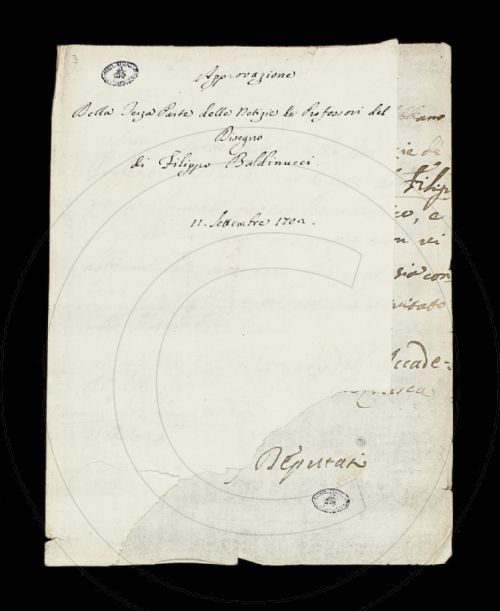 3
Approvazione
Della Terza Parte delle Notizie de Professori del
Disegno
di Filippo Baldinucci.
11. Settembre 1702.
Filip
con
Accade=
Deputati